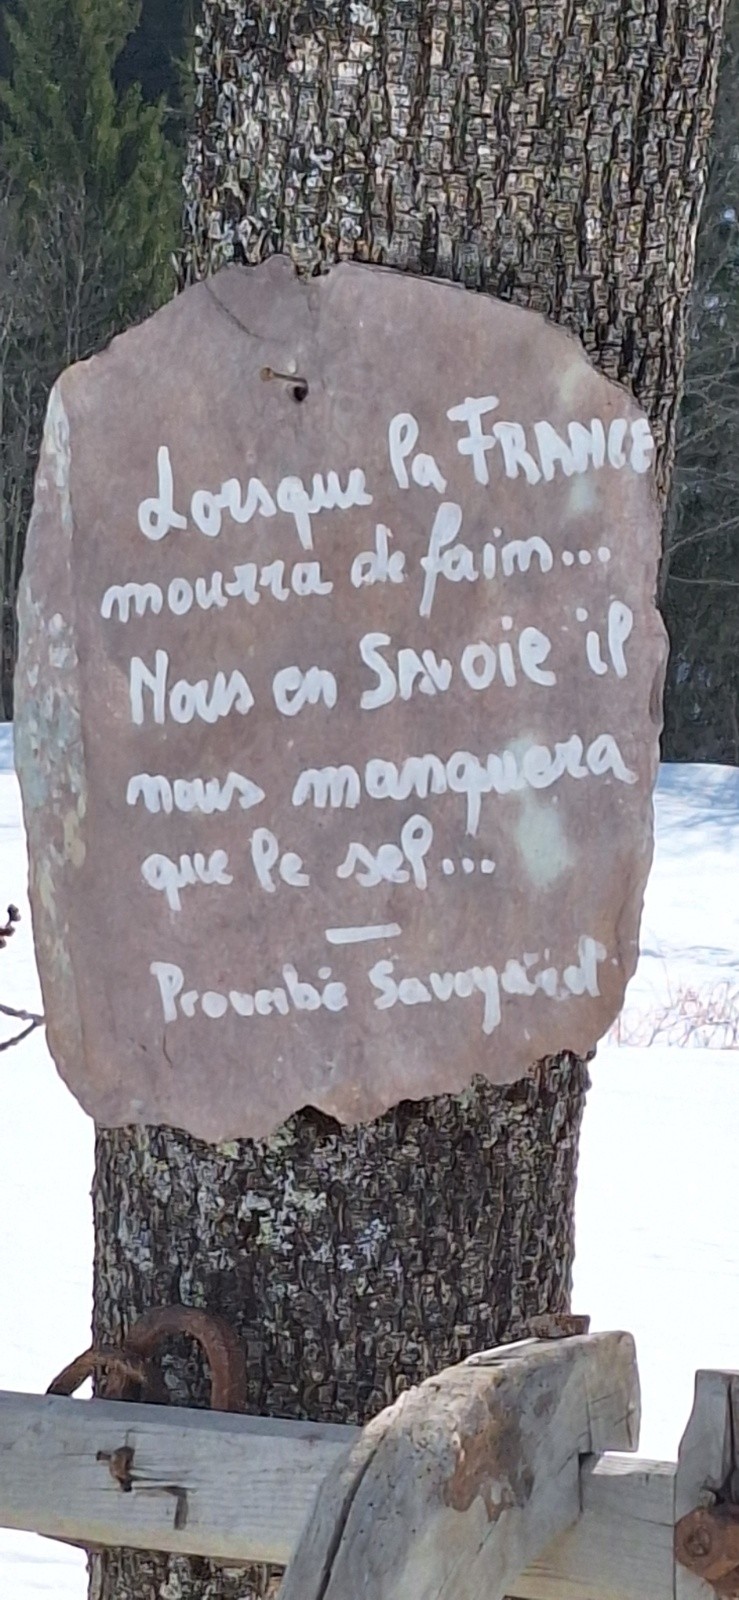 Lorsque la FRANCE
mourra de faim...
Nous en SAVOIE il
nous manquera
que le sel...
—
Proverbe Savoyard